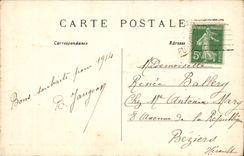 CARTE POSTALE
Correspondance
Adresse
Bons souhaits pour 1914
Mademoiselle
Renée
Chez Mr Antonin
8 Avenue de la République
Béziers
Hérault
5c